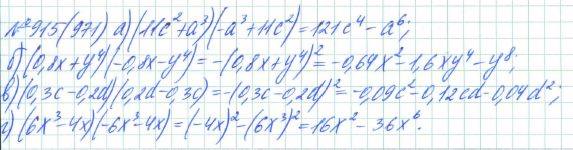 № 915(971) а) (11c² + a³)(-a³ + 11c²) = 121c⁴ - a⁶;
б) (0,8x + y⁴)(-0,8x - y⁴) = -(0,8x + y⁴)² = -0,64x² - 1,6xy⁴ - y⁸;
в) (0,3c - 0,2d)(0,2d - 0,3c) = -(0,3c - 0,2d)² = -0,09c² - 0,12cd - 0,04d²;
г) (6x³ - 4x)(-6x³ - 4x) = (-4x)² - (6x³)² = 16x² - 36x⁶.